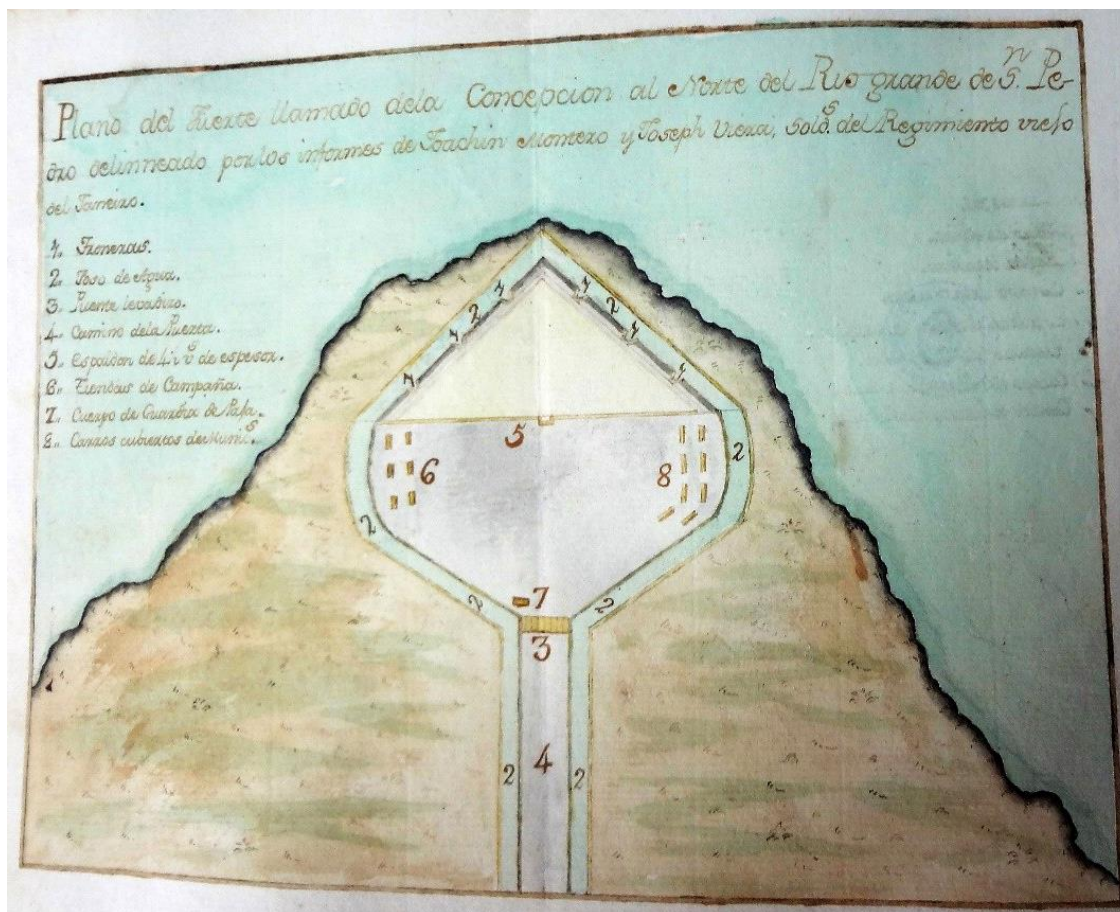 Plano del Fuerte llamado dela Concepcion al Norte del Rio grande de S.n Pe-
dro delinneado por los informes de Joachin Montero y Joseph Viera, Sold.s del Regimiento viejo
del Janeiro.
1. Troneras.
2. Foso de Agua.
3. Puente levadizo.
4. Camino dela Puerta.
5. Espaldon de 4 v.s de espesor.
6. Tiendas de Campaña.
7. Cuerpo de Guardia de Paja.
8. Carros cubiertos de Munic.s
1 2 1 1
1 2 1 1
5
6 8 2
2
2 7 2
3
4
2 2